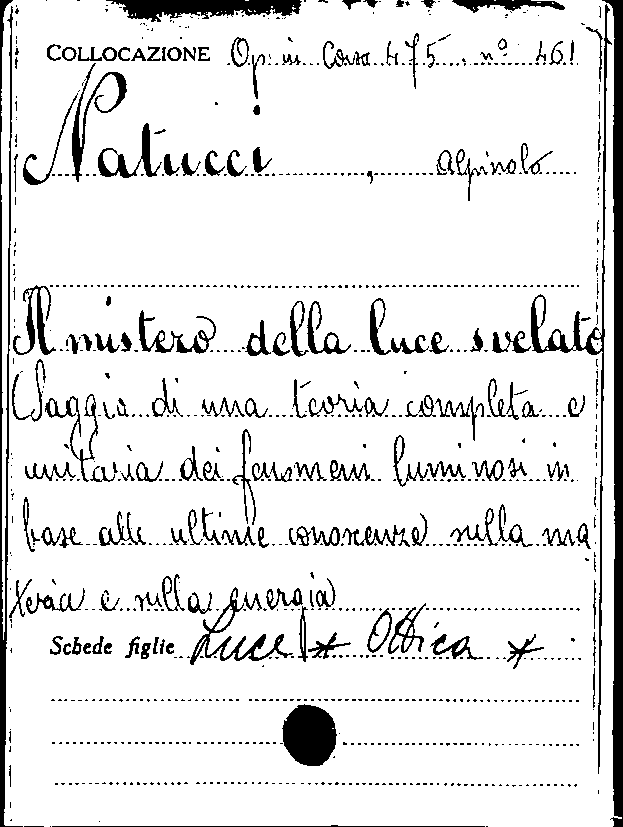 COLLOCAZIONE Op. in Corso 475. nº 461
Natucci, Alpinolo
Il mistero della luce svelato
Saggio di una teoria completa e
unitaria dei fenomeni luminosi in
base alle ultime conoscenze sulla ma
teria e sulla energia
Schede figlie Luce * Ottica *